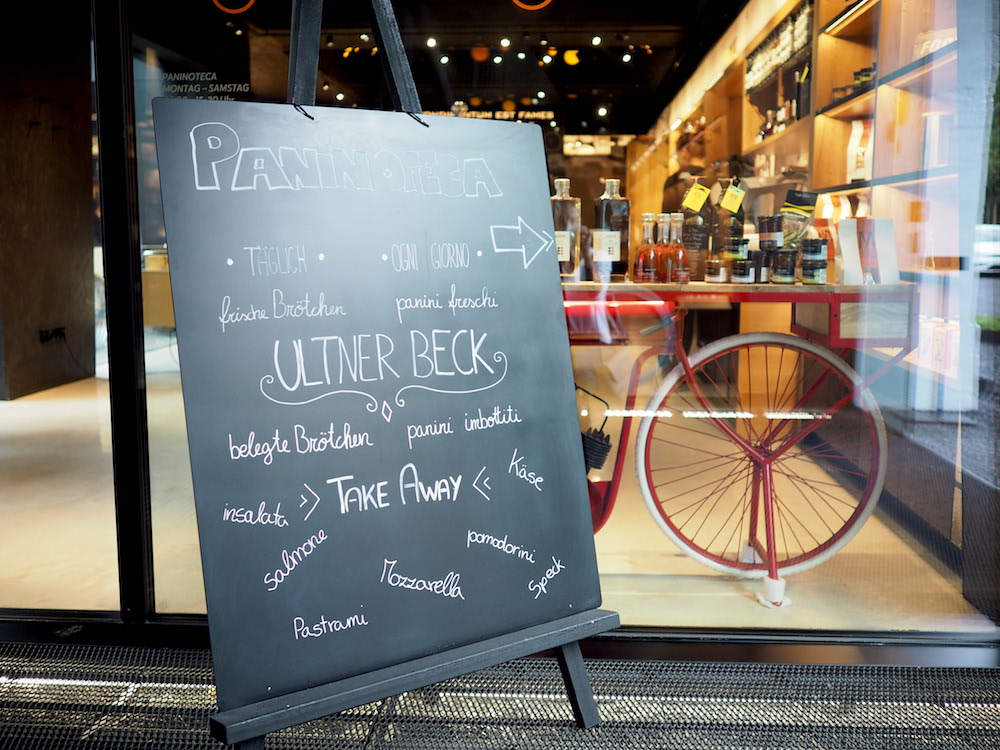 PANINOTECA
MONTAG – SAMSTAG
PANINOTECA
• TÄGLICH • • OGNI GIORNO •
frische Brötchen panini freschi
ULTNER BECK
belegte Brötchen panini imbottiti
TAKE AWAY
Käse
insalata
salmone
pomodorini
Mozzarella
Speck
Pastrami